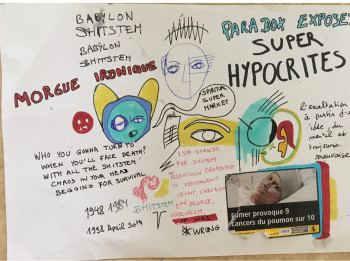 BABYLON
SHITSTEM
BABYLON
SHITSTEM
MORGUE IRONIQUE
PARADOX EXPOSE
SUPER
HYPOCRITES
SPIRITUAL
SUPER
MARKET
WHO YOU GONNA TURN TO
WHEN YOU'LL FACE DEATH?
WITH ALL THE SHITSTEM
CHAOS IN YOUR HEAD
BEGGING FOR SURVIVAL
1948 1984
SHITSTEM
1998 April 2019
ISM STANDS
FOR SYSTEM
TELEVISION BROADCAST
IS PERMANENT
IRONY, SARCASM
AND DECEIT,
VOYEURISM
WRONG
l'exaltation
à partir d'une
idée du
mental est
toujours
mauvaise
Fumer provoque 9
cancers du poumon sur 10